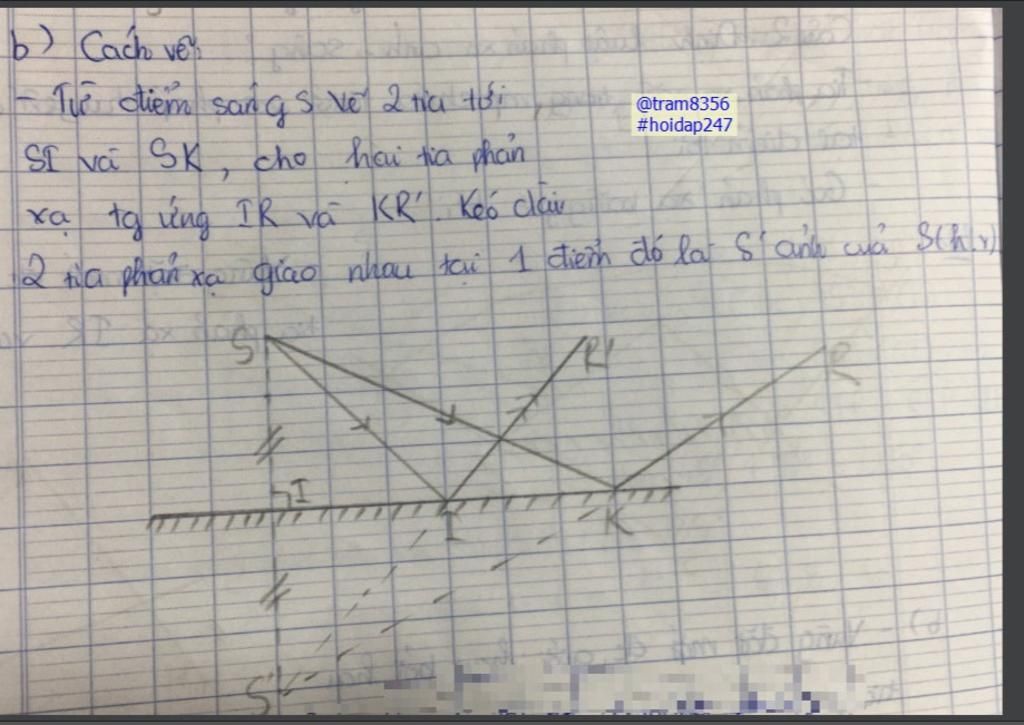 b) Cách vẽ:
- Từ điểm sáng S vẽ 2 tia tới
@tram8356
#hoidap247
SI và SK, cho hai tia phản
xạ tg ứng IR và KR'. Kéo dài
2 tia phản xạ giao nhau tại 1 điểm đó là S' ảnh của S(h.vẽ)
S
R'
R
I
I
K
S'